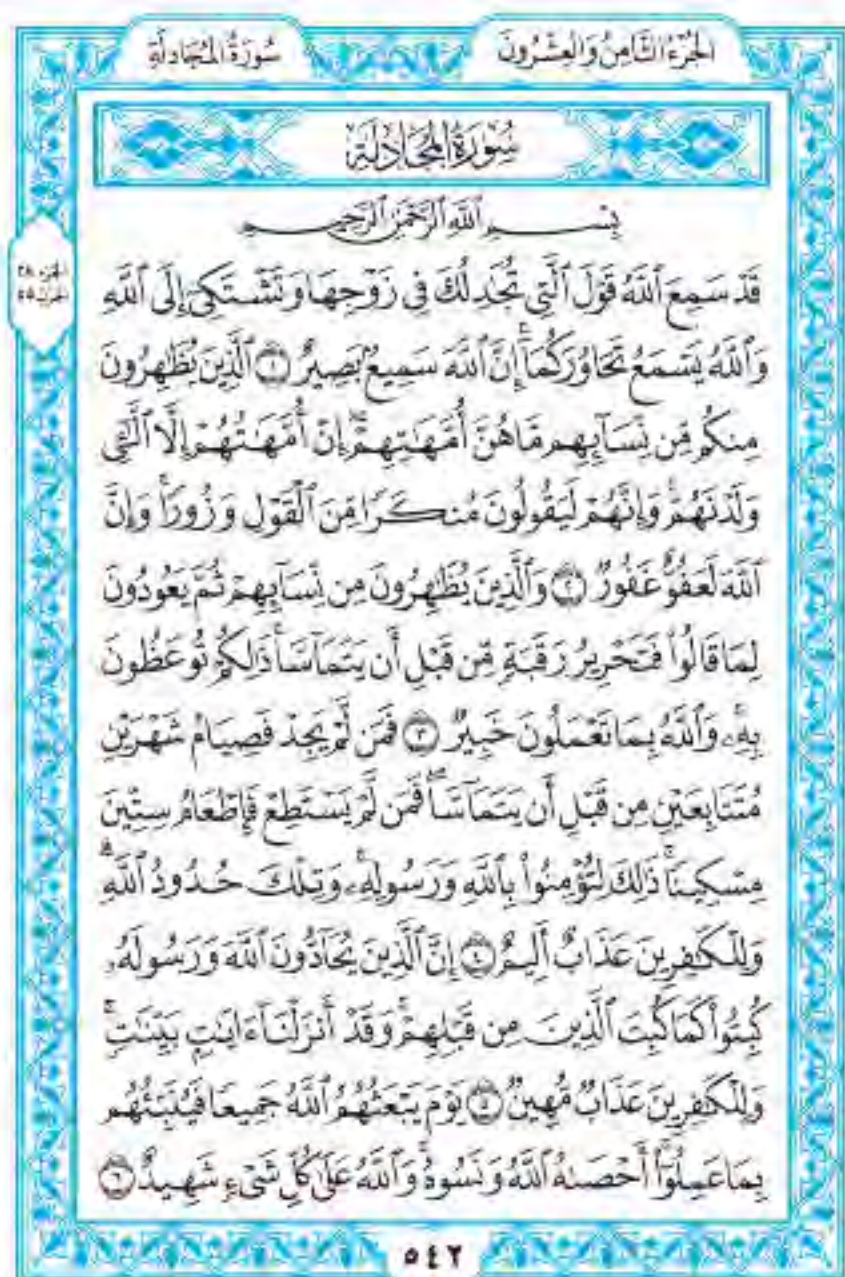 الجُزْءُ الثَّامِنُ وَالعِشْرُونَ
سُورَةُ المُجَادلَةِ
سُورَةُ المُجَادلَةِ
بِسْمِ ٱللَّهِ ٱلرَّحْمَٰنِ ٱلرَّحِيمِ
قَدْ سَمِعَ ٱللَّهُ قَوْلَ ٱلَّتِي تُجَٰدِلُكَ فِي زَوْجِهَا وَتَشْتَكِيٓ إِلَى ٱللَّهِ
وَٱللَّهُ يَسْمَعُ تَحَاوُرَكُمَآۚ إِنَّ ٱللَّهَ سَمِيعٌۢ بَصِيرٌ ١ ٱلَّذِينَ يُظَٰهِرُونَ
مِنكُم مِّن نِّسَآئِهِم مَّا هُنَّ أُمَّهَٰتِهِمْۖ إِنْ أُمَّهَٰتُهُمْ إِلَّا ٱلَّٰٓـِٔي
وَلَدْنَهُمْۚ وَإِنَّهُمْ لَيَقُولُونَ مُنكَرًا مِّنَ ٱلْقَوْلِ وَزُورًاۚ وَإِنَّ
ٱللَّهَ لَعَفُوٌّ غَفُورٌ ٢ وَٱلَّذِينَ يُظَٰهِرُونَ مِن نِّسَآئِهِمْ ثُمَّ يَعُودُونَ
لِمَا قَالُوا۟ فَتَحْرِيرُ رَقَبَةٍ مِّن قَبْلِ أَن يَتَمَآسَّاۚ ذَٰلِكُمْ تُوعَظُونَ
بِهِۦۚ وَٱللَّهُ بِمَا تَعْمَلُونَ خَبِيرٌ ٣ فَمَن لَّمْ يَجِدْ فَصِيَامُ شَهْرَيْنِ
مُتَتَابِعَيْنِ مِن قَبْلِ أَن يَتَمَآسَّاۖ فَمَن لَّمْ يَسْتَطِعْ فَإِطْعَامُ سِتِّينَ
مِسْكِينًاۚ ذَٰلِكَ لِتُؤْمِنُوا۟ بِٱللَّهِ وَرَسُولِهِۦۚ وَتِلْكَ حُدُودُ ٱللَّهِۗ
وَلِلْكَٰفِرِينَ عَذَابٌ أَلِيمٌ ٤ إِنَّ ٱلَّذِينَ يُحَآدُّونَ ٱللَّهَ وَرَسُولَهُۥ
كُبِتُوا۟ كَمَا كُبِتَ ٱلَّذِينَ مِن قَبْلِهِمْۚ وَقَدْ أَنزَلْنَآ ءَايَٰتٍۭ بَيِّنَٰتٍۚ
وَلِلْكَٰفِرِينَ عَذَابٌ مُّهِينٌ ٥ يَوْمَ يَبْعَثُهُمُ ٱللَّهُ جَمِيعًا فَيُنَبِّئُهُم
بِمَا عَمِلُوٓا۟ۚ أَحْصَىٰهُ ٱللَّهُ وَنَسُوهُۚ وَٱللَّهُ عَلَىٰ كُلِّ شَىْءٍ شَهِيدٌ ٦
الجزء ٢٨
الحزب ٥٥
٥٤٢